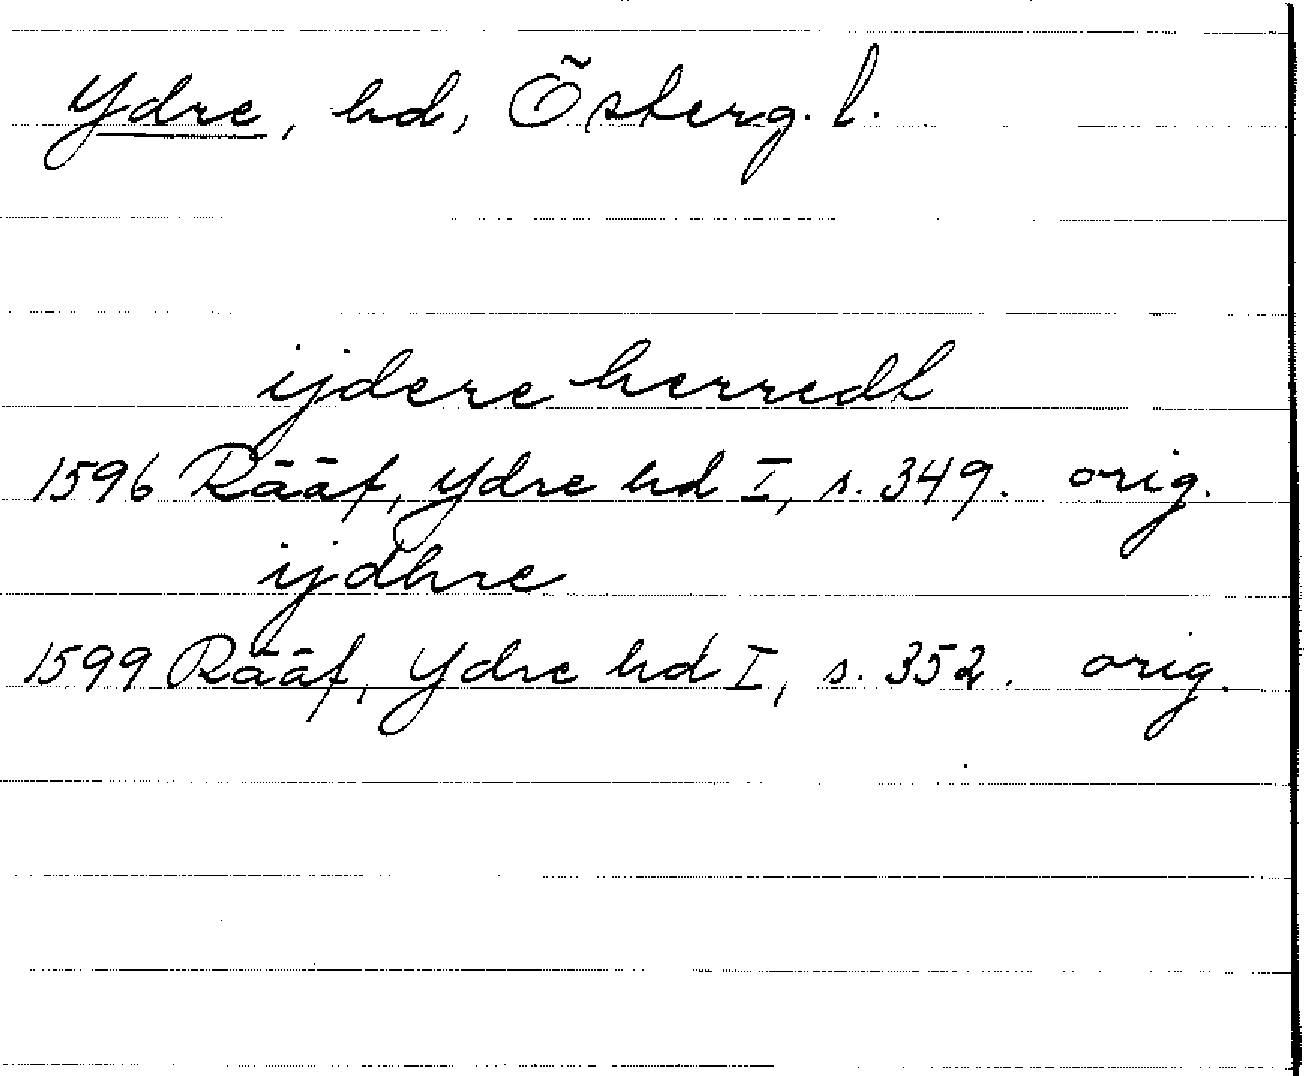 Ydre, hd, Österg. l.
ijdere herredt
1596 Rääf, Ydre hd I, s. 349. orig.
ijdhre
1599 Rääf, Ydre hd I, s. 352. orig.